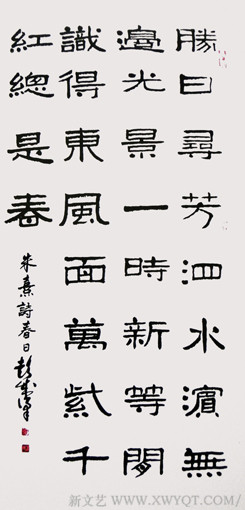 勝日尋芳泗水濵無
邊光景一時新等閒
識得東風面萬紫千
紅總是春
朱熹詩春日
新文艺 WWW.XWYQT.COM